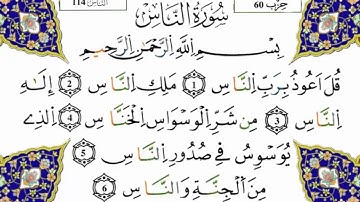 حزب 60
الناس 114
سُورَةُ النَّاسِ
بِسْمِ اللَّهِ الرَّحْمَٰنِ الرَّحِيمِ
قُلَ اَعُوذُ بِرَبِّ اِ۬لنَّاسِ ① مَلِكِ اِ۬لنَّاسِ ② إِلَٰهِ
اِ۬لنَّاسِ ③ مِن شَرِّ اِ۬لْوَسْوَاسِ اِ۬لْخَنَّاسِ ④ اِ۬لذِے
يُوَسْوِسُ فِے صُدُورِ اِ۬لنَّاسِ ⑤
مِنَ اَ۬لْجِنَّةِ وَالنَّاسِ ⑥